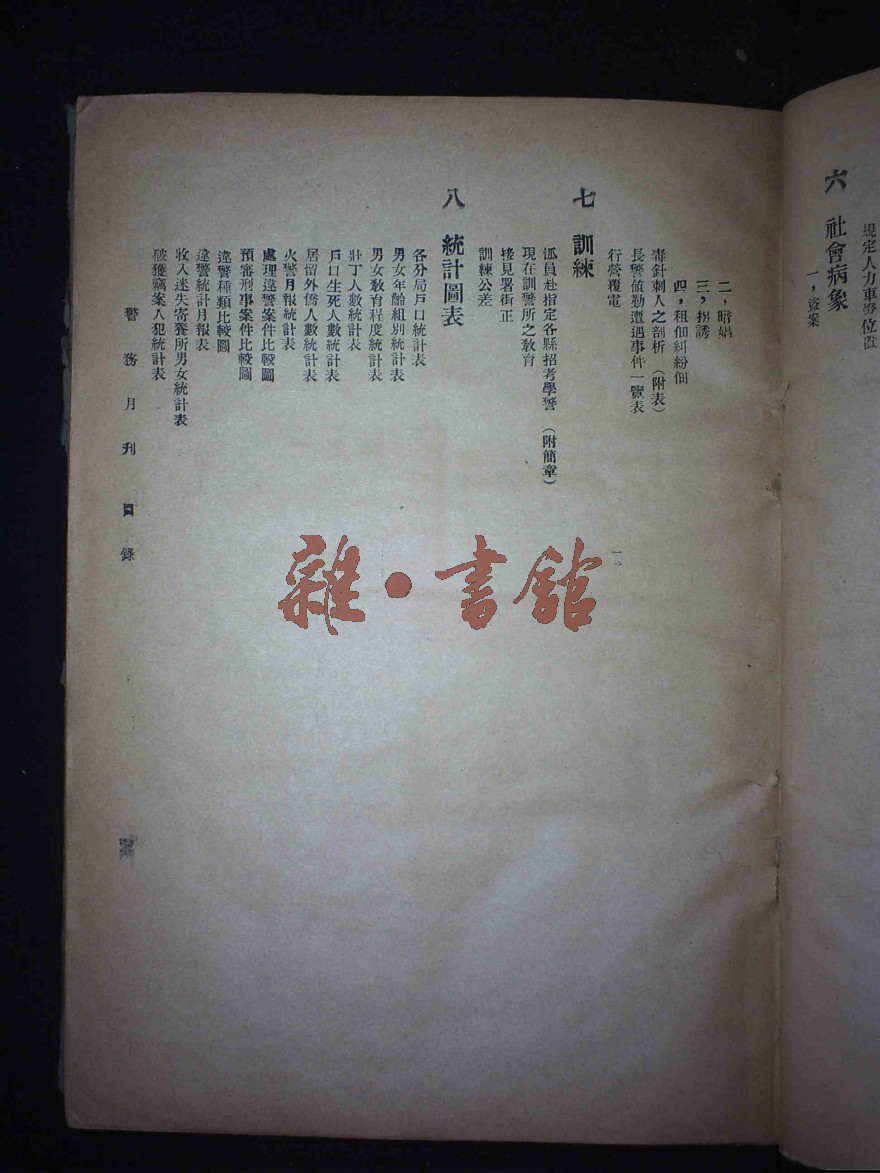 規定人力車停位置
六 社會病象
一,盜案
二,暗娼
三,拐誘
四,租佃糾紛
毒針刺人之剖析(附表)
長警值勤遭遇事件一覽表
行營覆電
七 訓練
派員赴指定各縣招考學警(附簡章)
現在訓警所之教育
接見署街正
訓練公差
八 統計圖表
各分局戶口統計表
男女年齡組別統計表
男女教育程度統計表
壯丁人數統計表
戶口生死人數統計表
居留外僑人數統計表
火警月報統計表
處理違警案件比較圖
預審刑事案件比較圖
違警種類比較圖
違警統計月報表
收入迷失寄養所男女統計表
破獲竊案人犯統計表
警務月刊 目錄
雜·書館